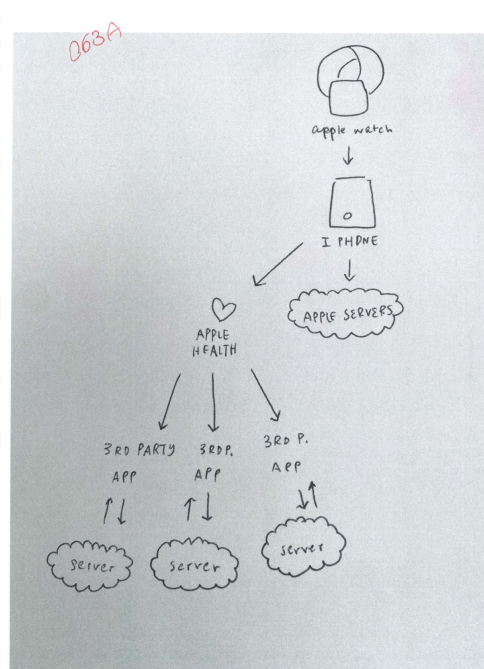 063A
apple watch
I PHONE
APPLE SERVERS
APPLE
HEALTH
3RD PARTY
APP
3RD P.
APP
3RD P.
APP
server
server
server